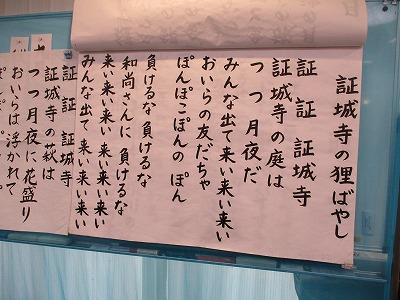 証城寺の狸ばやし
証 証 証城寺
証城寺の庭は
つつ月夜だ
みんな出て来い来い来い
おいらの友だちゃ
ぽんぽこぽんのぽん
負けるな 負けるな
和尚さんに 負けるな
来い来い来い 来い来い来い
みんな出て来い来い来い
証 証 証城寺
証城寺の萩は
つつ月夜に花盛り
おいらは浮かれて